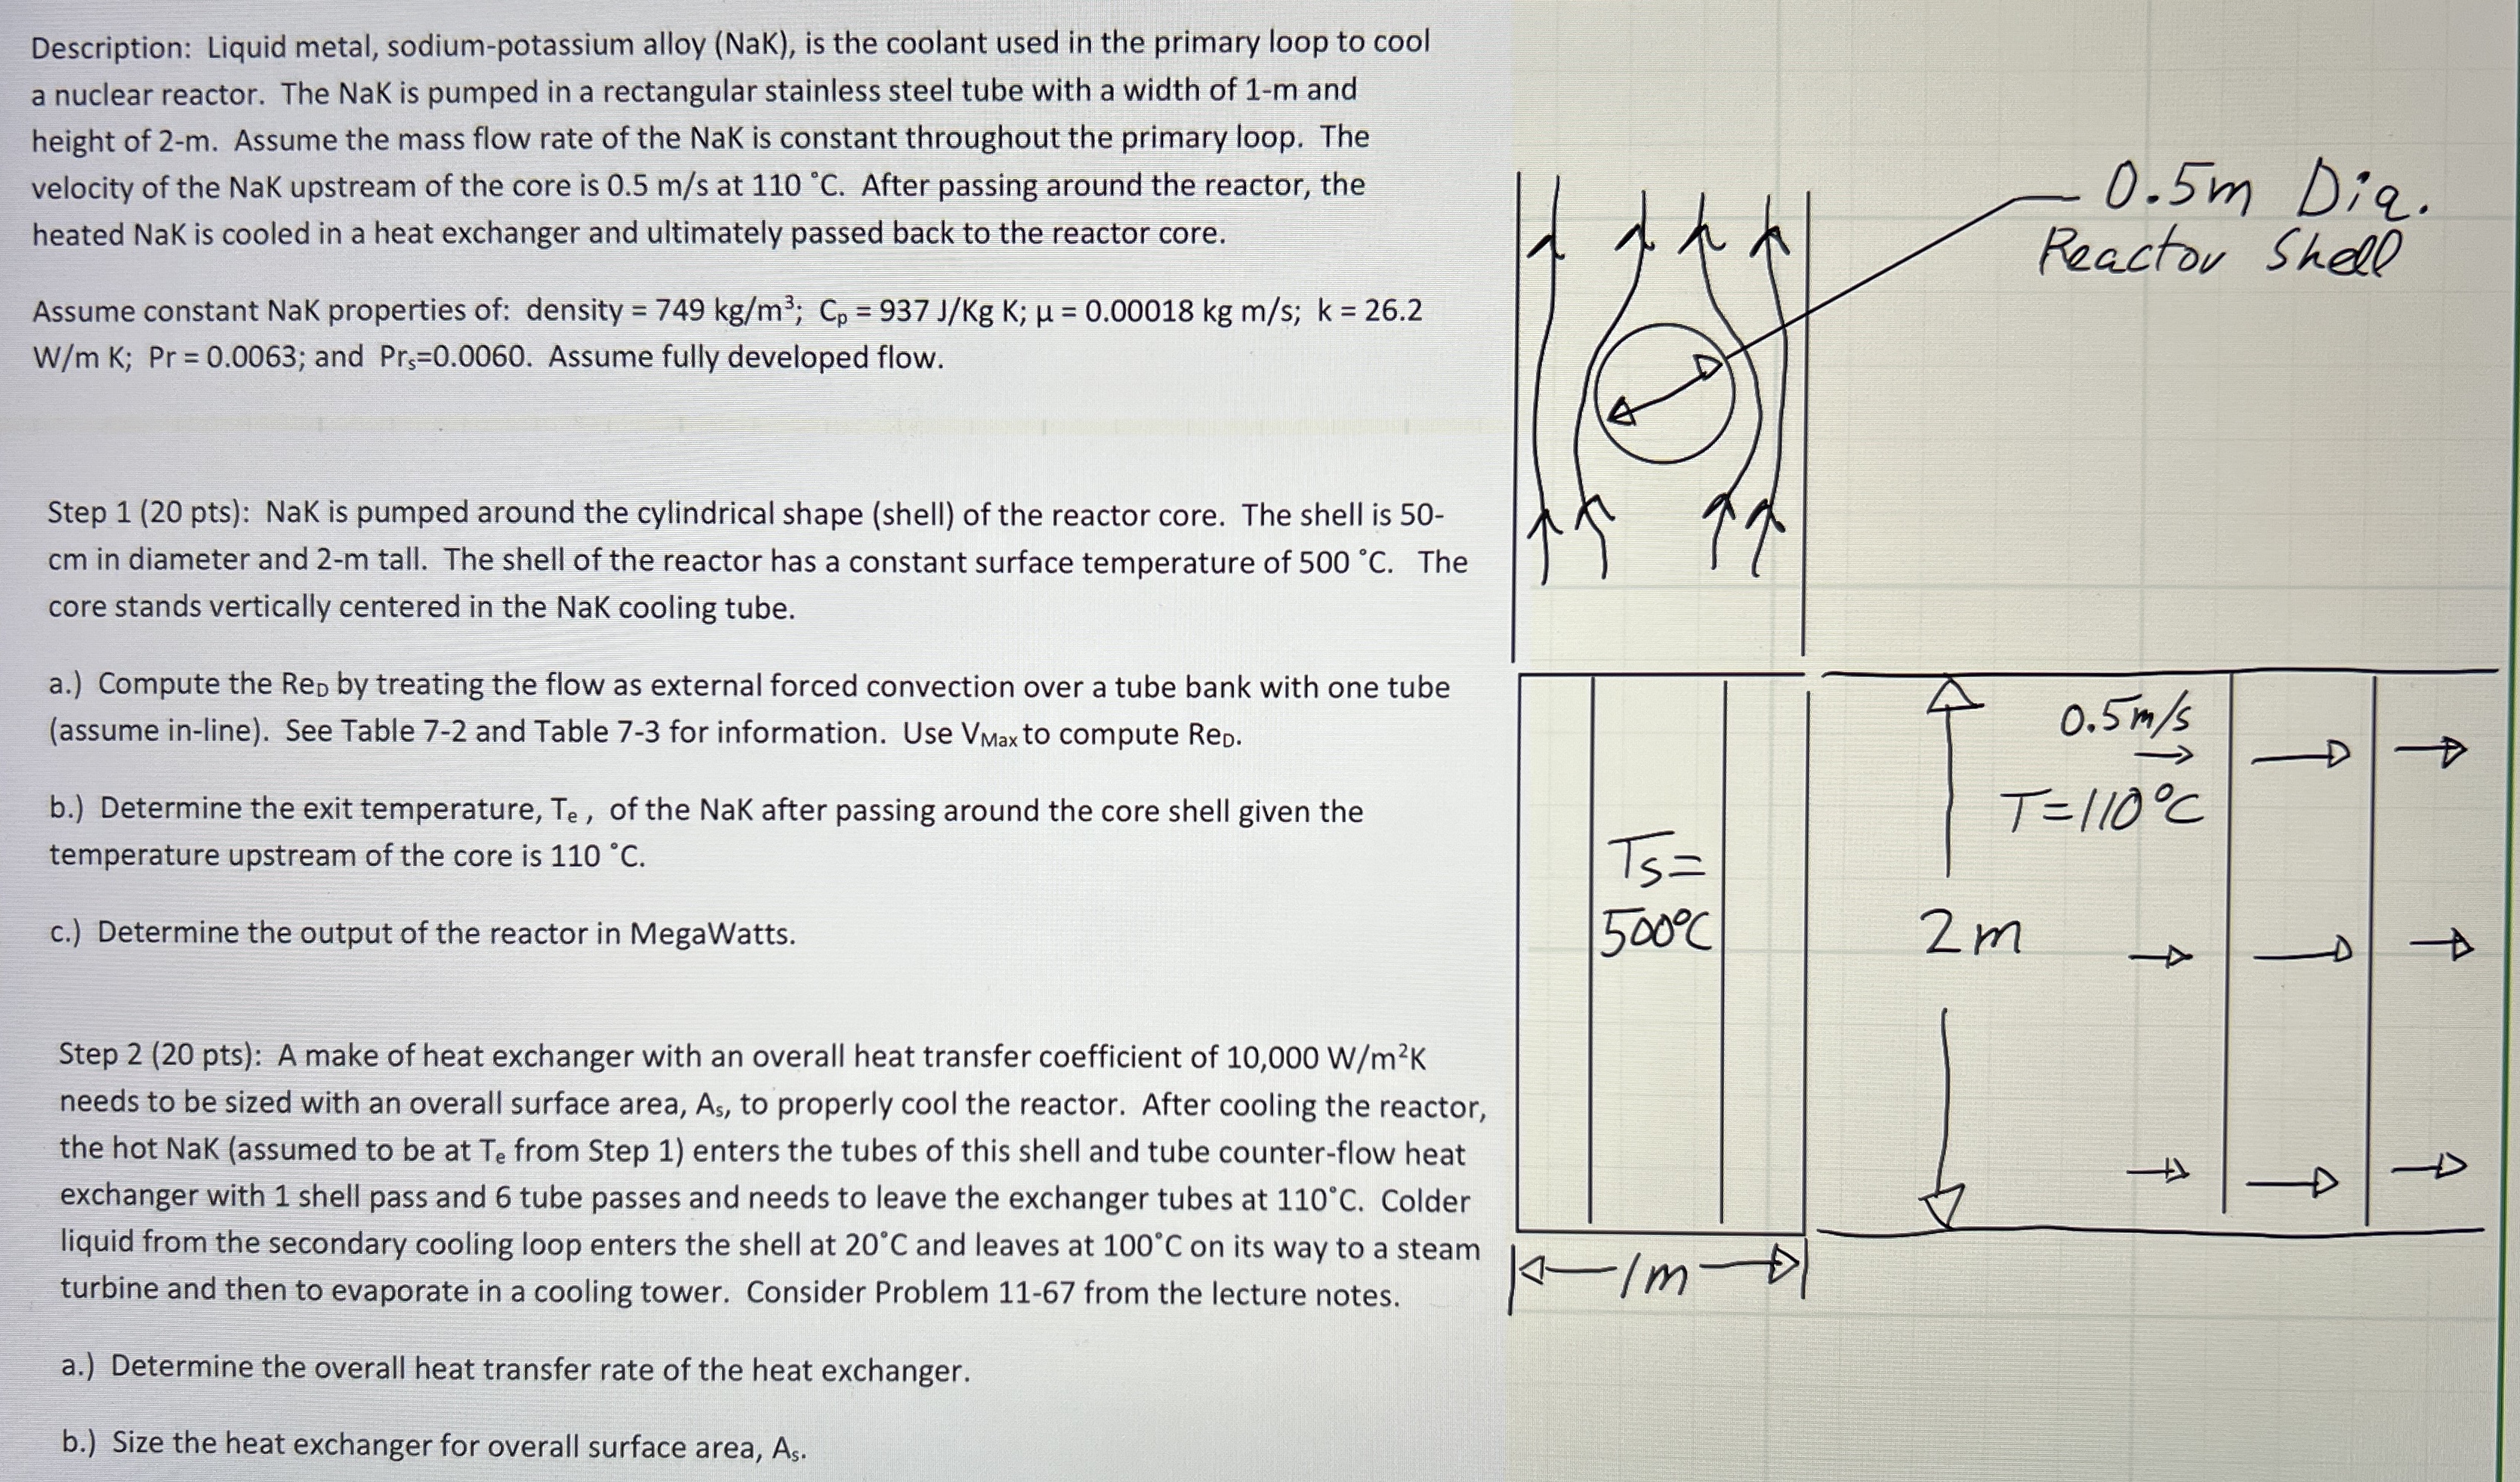 Description: Liquid metal, sodium-potassium alloy (NaK), is the coolant used in the primary loop to cool
a nuclear reactor. The NaK is pumped in a rectangular stainless steel tube with a width of 1-m and
height of 2-m. Assume the mass flow rate of the NaK is constant throughout the primary loop. The
velocity of the NaK upstream of the core is 0.5 m/s at 110 °C. After passing around the reactor, the
heated NaK is cooled in a heat exchanger and ultimately passed back to the reactor core.
Assume constant NaK properties of: density = 749 kg/m³; Cₚ = 937 J/Kg K; µ = 0.00018 kg m/s; k = 26.2
W/m K; Pr = 0.0063; and Prₛ=0.0060. Assume fully developed flow.
Step 1 (20 pts): NaK is pumped around the cylindrical shape (shell) of the reactor core. The shell is 50-
cm in diameter and 2-m tall. The shell of the reactor has a constant surface temperature of 500 °C. The
core stands vertically centered in the NaK cooling tube.
a.) Compute the Re_D by treating the flow as external forced convection over a tube bank with one tube
(assume in-line). See Table 7-2 and Table 7-3 for information. Use V_Max to compute Re_D.
b.) Determine the exit temperature, Tₑ , of the NaK after passing around the core shell given the
temperature upstream of the core is 110 °C.
c.) Determine the output of the reactor in MegaWatts.
Step 2 (20 pts): A make of heat exchanger with an overall heat transfer coefficient of 10,000 W/m²K
needs to be sized with an overall surface area, Aₛ, to properly cool the reactor. After cooling the reactor,
the hot NaK (assumed to be at Tₑ from Step 1) enters the tubes of this shell and tube counter-flow heat
exchanger with 1 shell pass and 6 tube passes and needs to leave the exchanger tubes at 110°C. Colder
liquid from the secondary cooling loop enters the shell at 20°C and leaves at 100°C on its way to a steam
turbine and then to evaporate in a cooling tower. Consider Problem 11-67 from the lecture notes.
a.) Determine the overall heat transfer rate of the heat exchanger.
b.) Size the heat exchanger for overall surface area, Aₛ.
0.5m Dia.
Reactor Shell
Ts=
500°C
1m
2m
0.5m/s
T=110°C